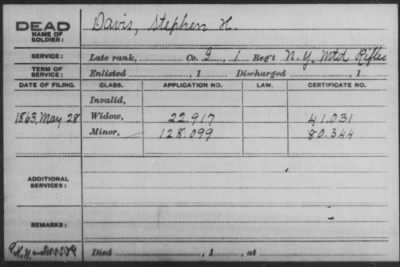 DEAD
NAME OF SOLDIER:
Davis, Stephen H.
SERVICE:
Late rank, Co. I, 1 Reg't N.Y. Mtd Rifles
TERM OF SERVICE:
Enlisted , 1 Discharged , 1
DATE OF FILING. CLASS. APPLICATION NO. LAW. CERTIFICATE NO.
Invalid,
1863, May 28 Widow, 22.917 41.031
Minor, 128.099 80.344
ADDITIONAL SERVICES:
REMARKS:
Died , 1 , at